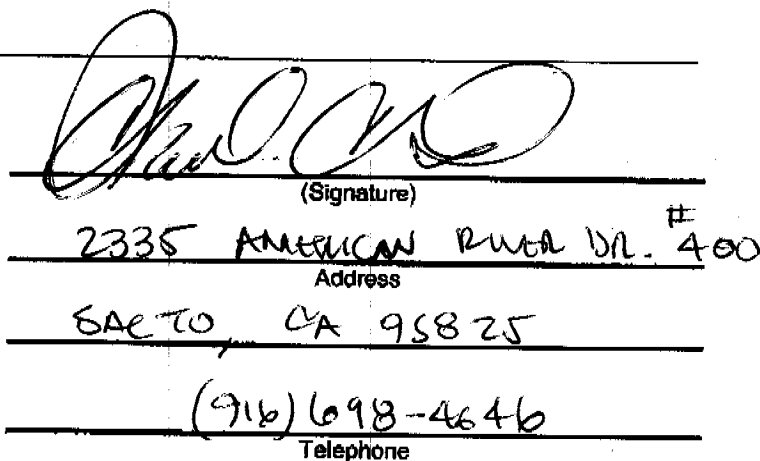 (Signature)
2335 AMERICAN RIVER DR. #400
Address
SACTO, CA 95825
(916) 698-4646
Telephone